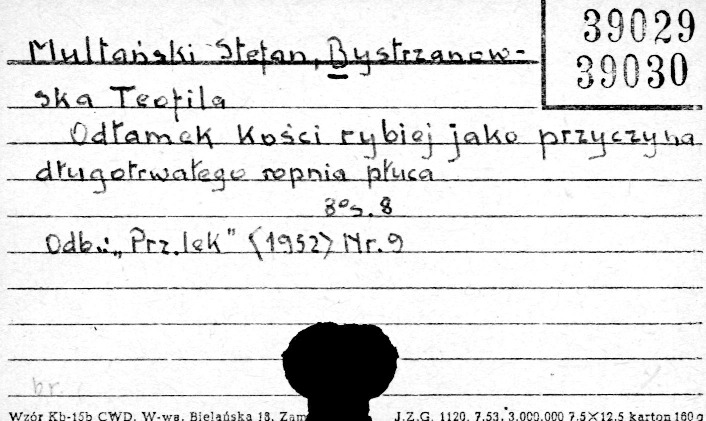 39029
39030
Multański Stefan, Bystrzanow-
ska Teofila
Odłamek kości rybiej jako przyczyna
długotrwałego ropnia płuca
8° s. 8
Odb.: „Prz. lek" (1952) Nr. 9
br.
Wzór Kb-15b CWD, W-wa, Bielańska 18, Zam
J.Z.G. 1120. 7.53. 3.000.000 7.5×12.5 karton 160 g